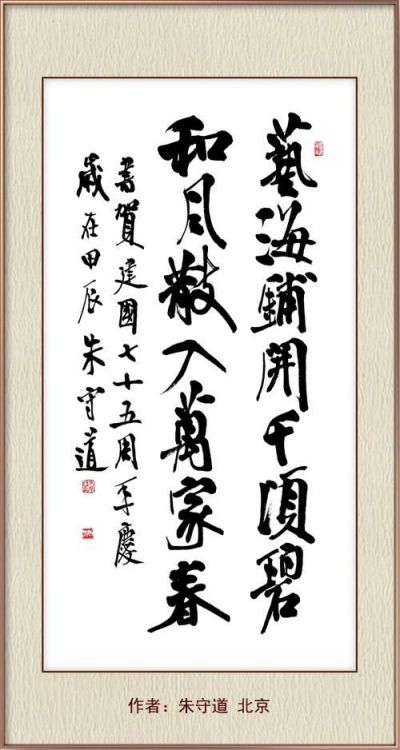 藝海鋪開千頃碧
和月散入萬家春
書賀建國七十五周年慶
歲在甲辰朱守道
作者：朱守道 北京